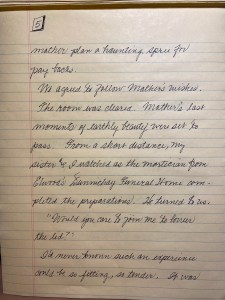 5
mother plan a haunting spree for
pay backs.
We agreed to follow Mother's wishes.
The room was cleared. Mother's last
moments of earthly beauty were set to
pass. From a short distance, my
sister & I watched as the mortician from
Elwood's Funeral Home com-
pleted the preparations. He turned to us.
"Would you care to join me to lower
the lid?"
I'd never known such an experience
could be so fitting, so tender. It was